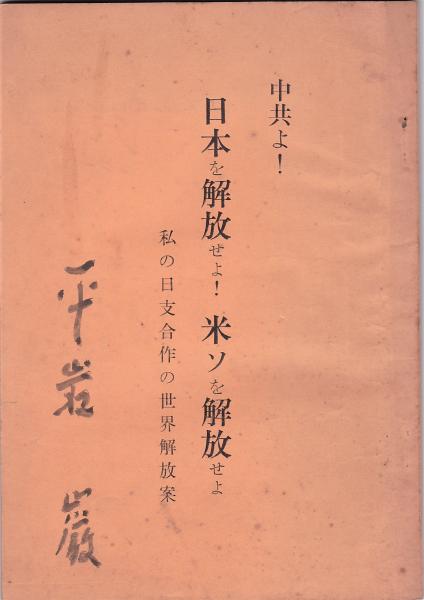 中共よ!
日本を解放せよ! 米ソを解放せよ
私の日支合作の世界解放案
平岩 巌